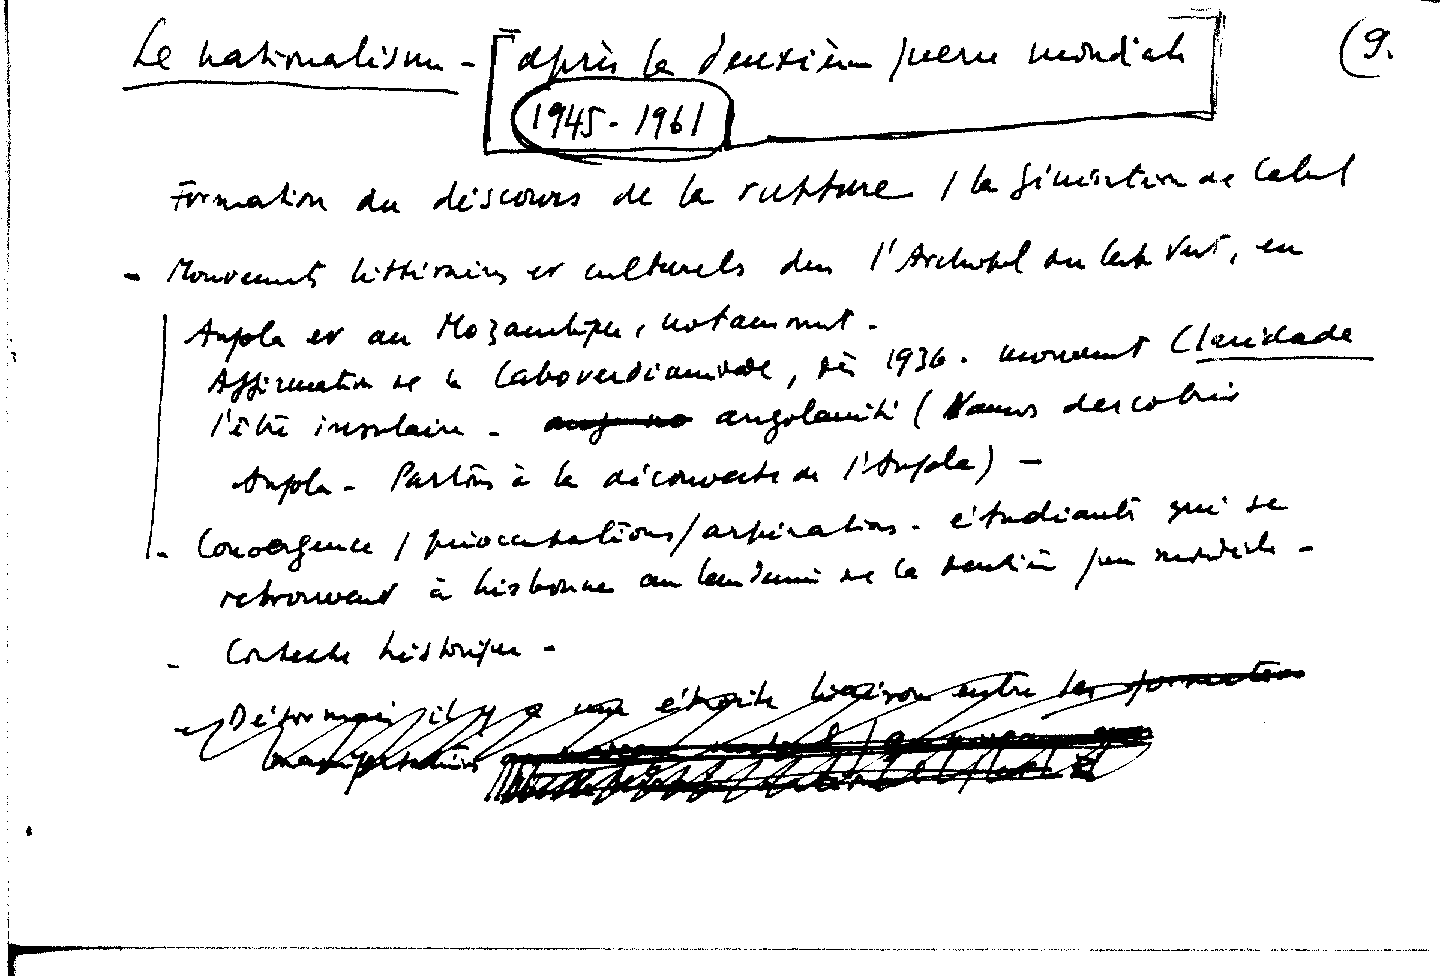 Le nationalisme - après la deuxième guerre mondiale (9.
1945 - 1961
Formation du discours de la rupture / la génération de Cabral
- Mouvements littéraires et culturels dans l'Archipel du Cap Vert, en
Angola et au Mozambique, notamment.
Affirmation de la Caboverdianidade, dès 1936. mouvement Claridade
l'être insulaire - angolanité (Vamos descobrir
Angola - Partons à la découverte de l'Angola) -
- Convergence / préoccupations/aspirations. étudiants qui se
retrouvent à Lisbonne au lendemain de la deuxième guerre mondiale -
- Contexte historique -
- Désormais il y a une étroite liaison entre les formation
manifestations